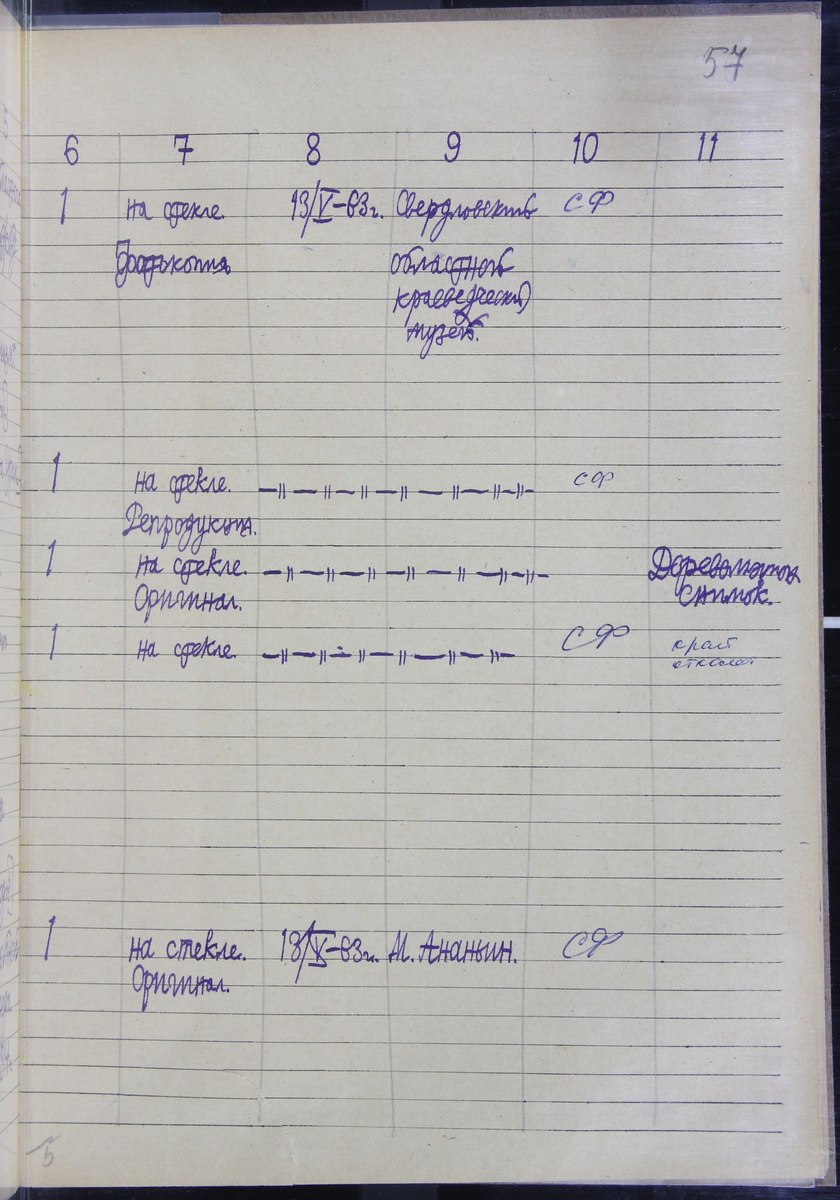 57
6 7 8 9 10 11
1 на стекле. 13/V-63г. Свердловский СФ
Фотокопия областной
краеведческий
музей.
1 на стекле. –〃–〃–〃–〃–〃–〃– СФ
Репродукция.
1 на стекле. –〃–〃–〃–〃–〃–〃– Дореволюцион
Оригинал. снимок.
1 на стекле. –〃–〃–〃–〃–〃–〃– СФ край
отколот
1 на стекле. 13/V-63г. М. Ананьин. СФ
Оригинал.
5